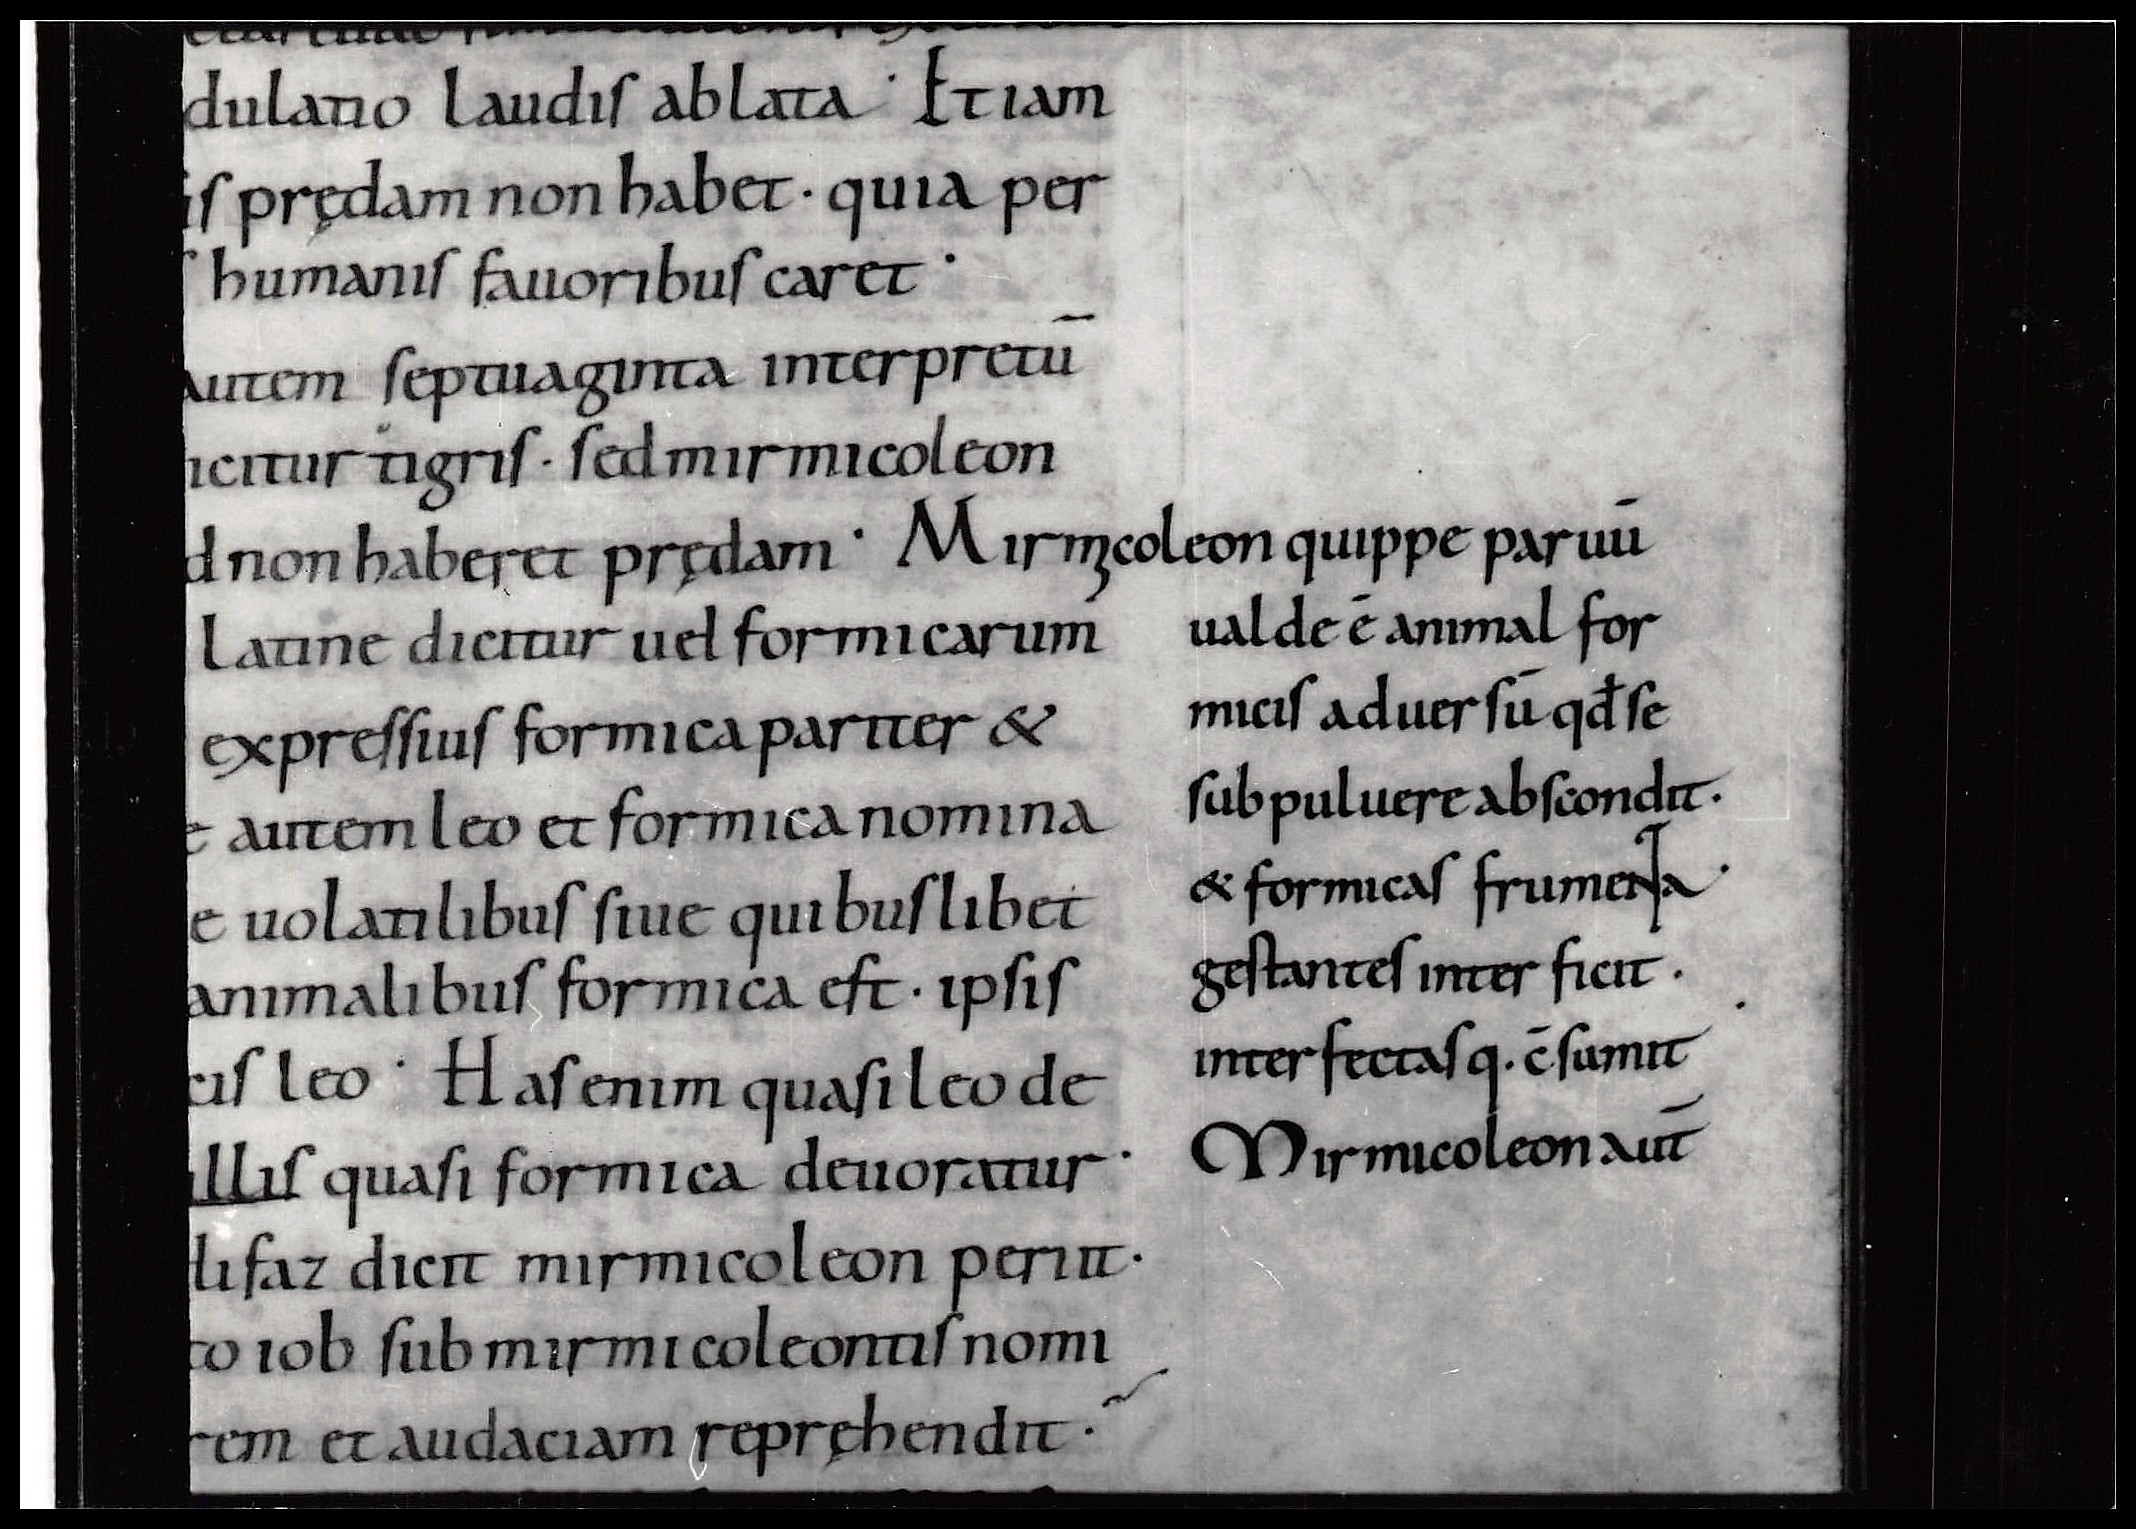 dulatio laudis ablata · Etiam
is prędam non habet · quia per
humanis fauoribus caret ·
autem septuaginta interpretū
icitur tigris · sed mirmicoleon
d non haberet prędam · Mirmicoleon quippe paruū
latine dicitur uel formicarum
expressius formica pariter &
e autem leo et formica nomina
e uolatilibus siue quibuslibet
animalibus formica est · ipsis
cis leo · Has enim quasi leo de
illis quasi formica deuoratur ·
lifaz dicit mirmicoleon periit ·
to iob sub mirmicoleontis nomi
rem et audaciam repręhendit ·
ualde ē animal for
micis aduersū qđ se
sub puluere abscondit ·
& formicas frumenta ·
gestantes interficit ·
interfectasq · c̄sumit
Mirmicoleon aut̄